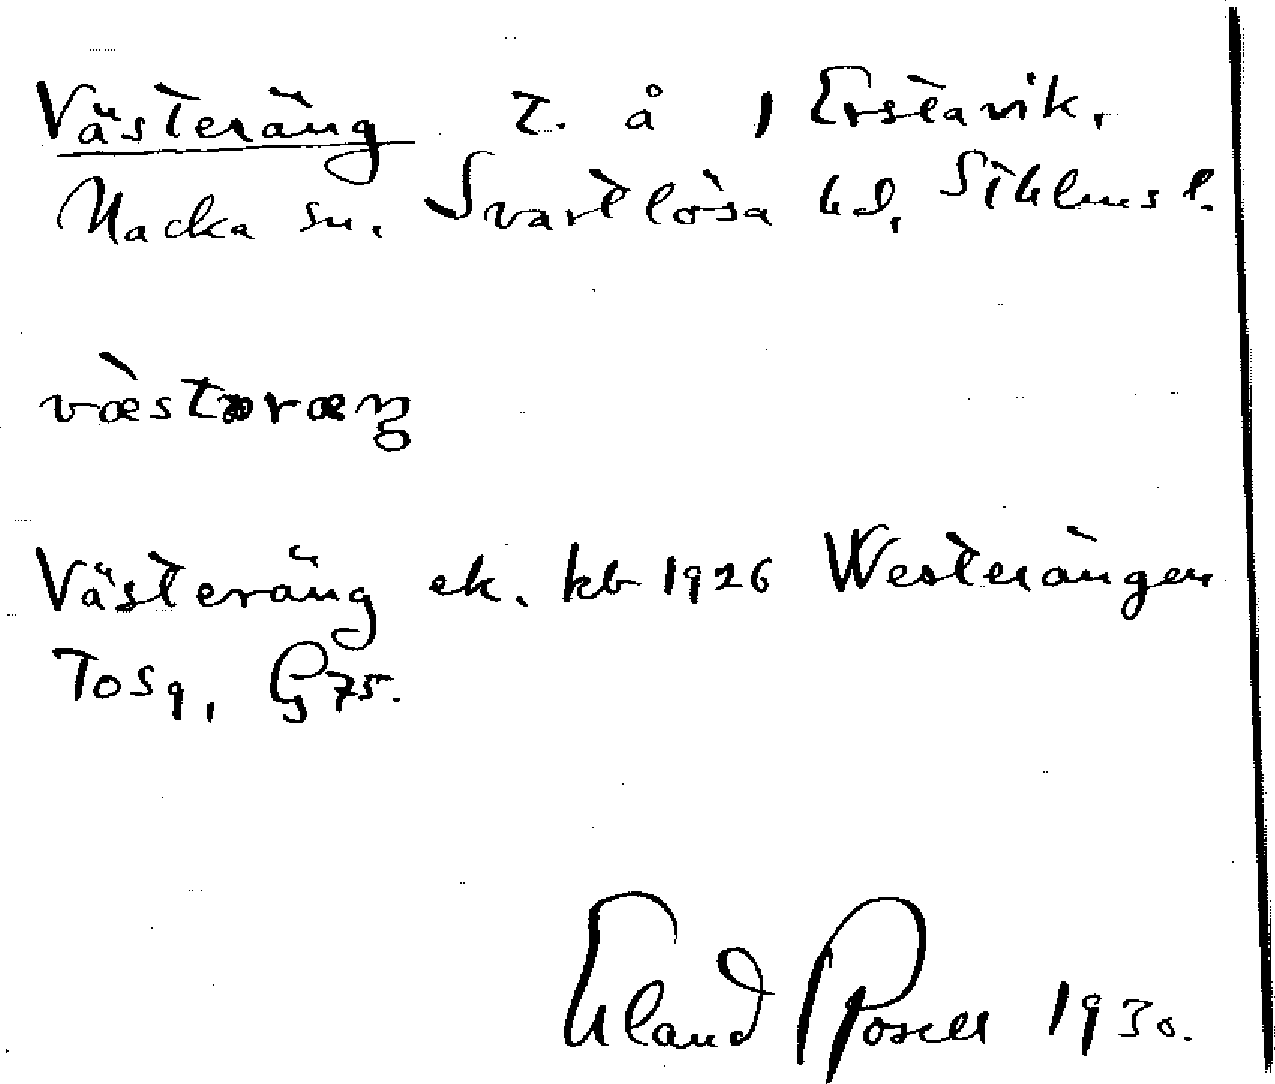 Västeräng t. å , Erstavik,
Nacka sn. Svartlösa hd, Sthlms l.
væ̀stəræŋ
Västeräng ek. kb 1926 Westerängen
Tos9, G75.
Erland Rosell 1930.